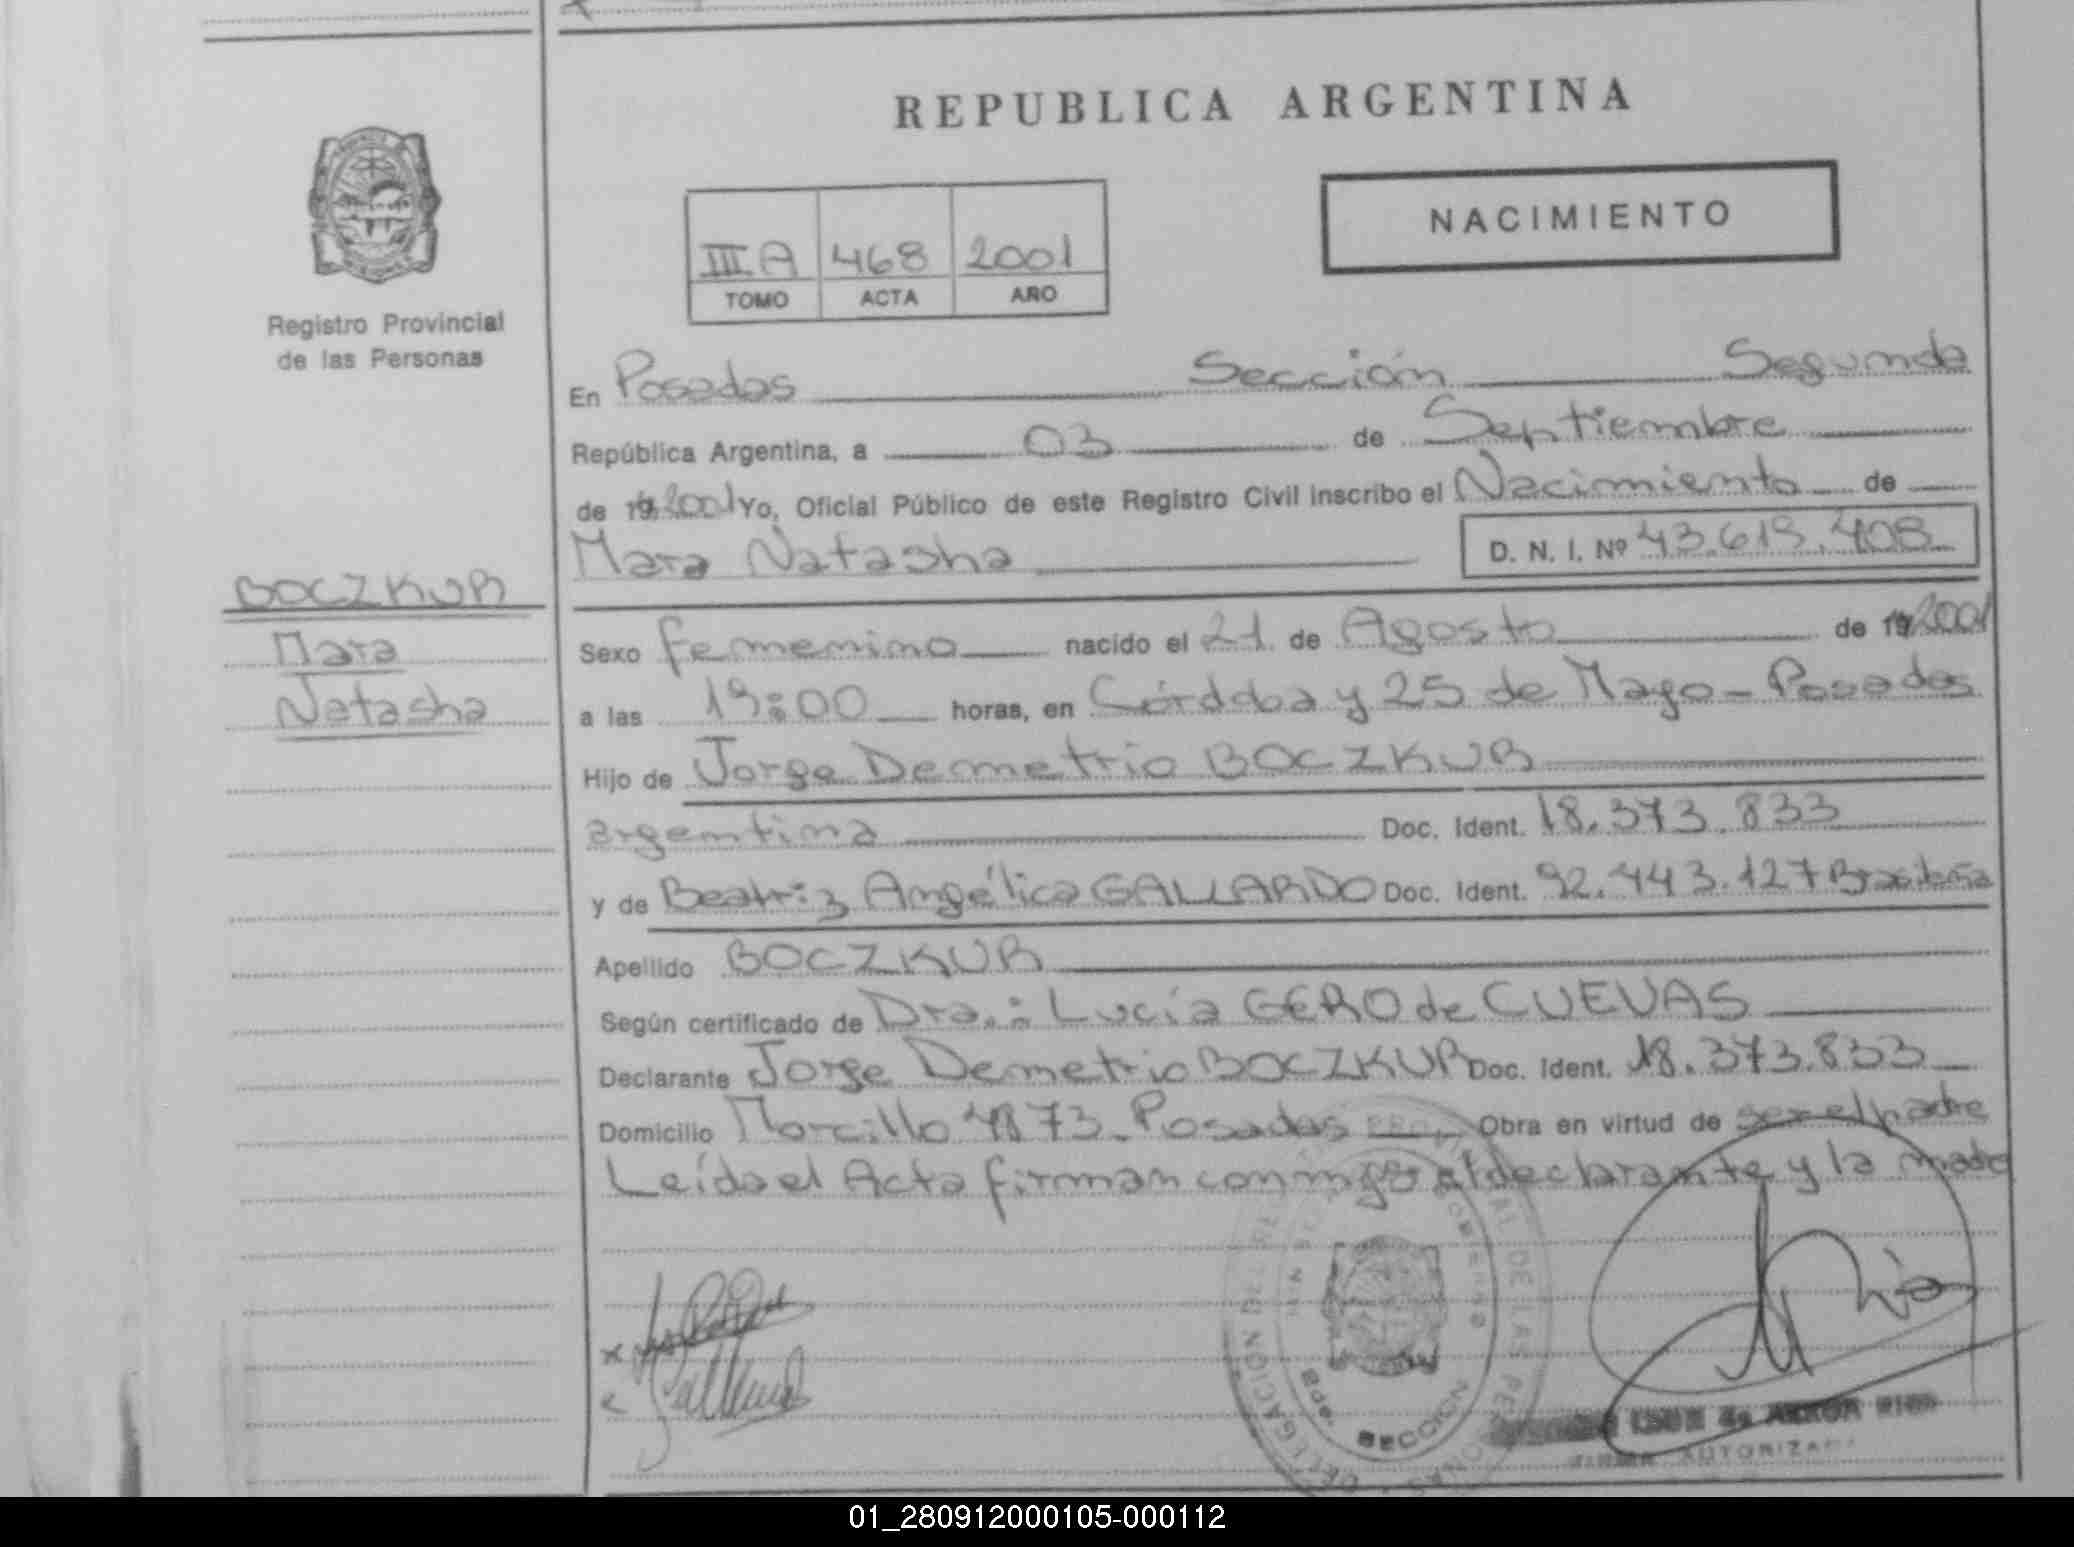 REPUBLICA ARGENTINA
NACIMIENTO
III A 468 2001
TOMO ACTA AÑO
Registro Provincial
de las Personas
En Posadas Sección Segunda
República Argentina, a 03 de Septiembre
de 19 2001 Yo, Oficial Público de este Registro Civil inscribo el Nacimiento de
Mara Natasha D. N. I. Nº 43.619.408
BOCZKUR
Mara
Natasha
Sexo femenino nacido el 21 de Agosto de 19 2001
a las 19:00 horas, en Córdoba y 25 de Mayo - Posadas
Hijo de Jorge Demetrio BOCZKUR
argentina Doc. Ident. 18.373.833
y de Beatriz Angélica GALLARDO Doc. Ident. 92.443.127 Brasileña
Apellido BOCZKUR
Según certificado de Dra.: Lucía GERO de CUEVAS
Declarante Jorge Demetrio BOCZKUR Doc. Ident. 18.373.833
Domicilio Morcillo 4873 - Posadas Obra en virtud de ser el padre
Leída el Acta firman conmigo el declarante y la madre
DELEGACIÓN DE LAS PERSONAS
SECCION
FIRMA AUTORIZADA
01_280912000105-000112